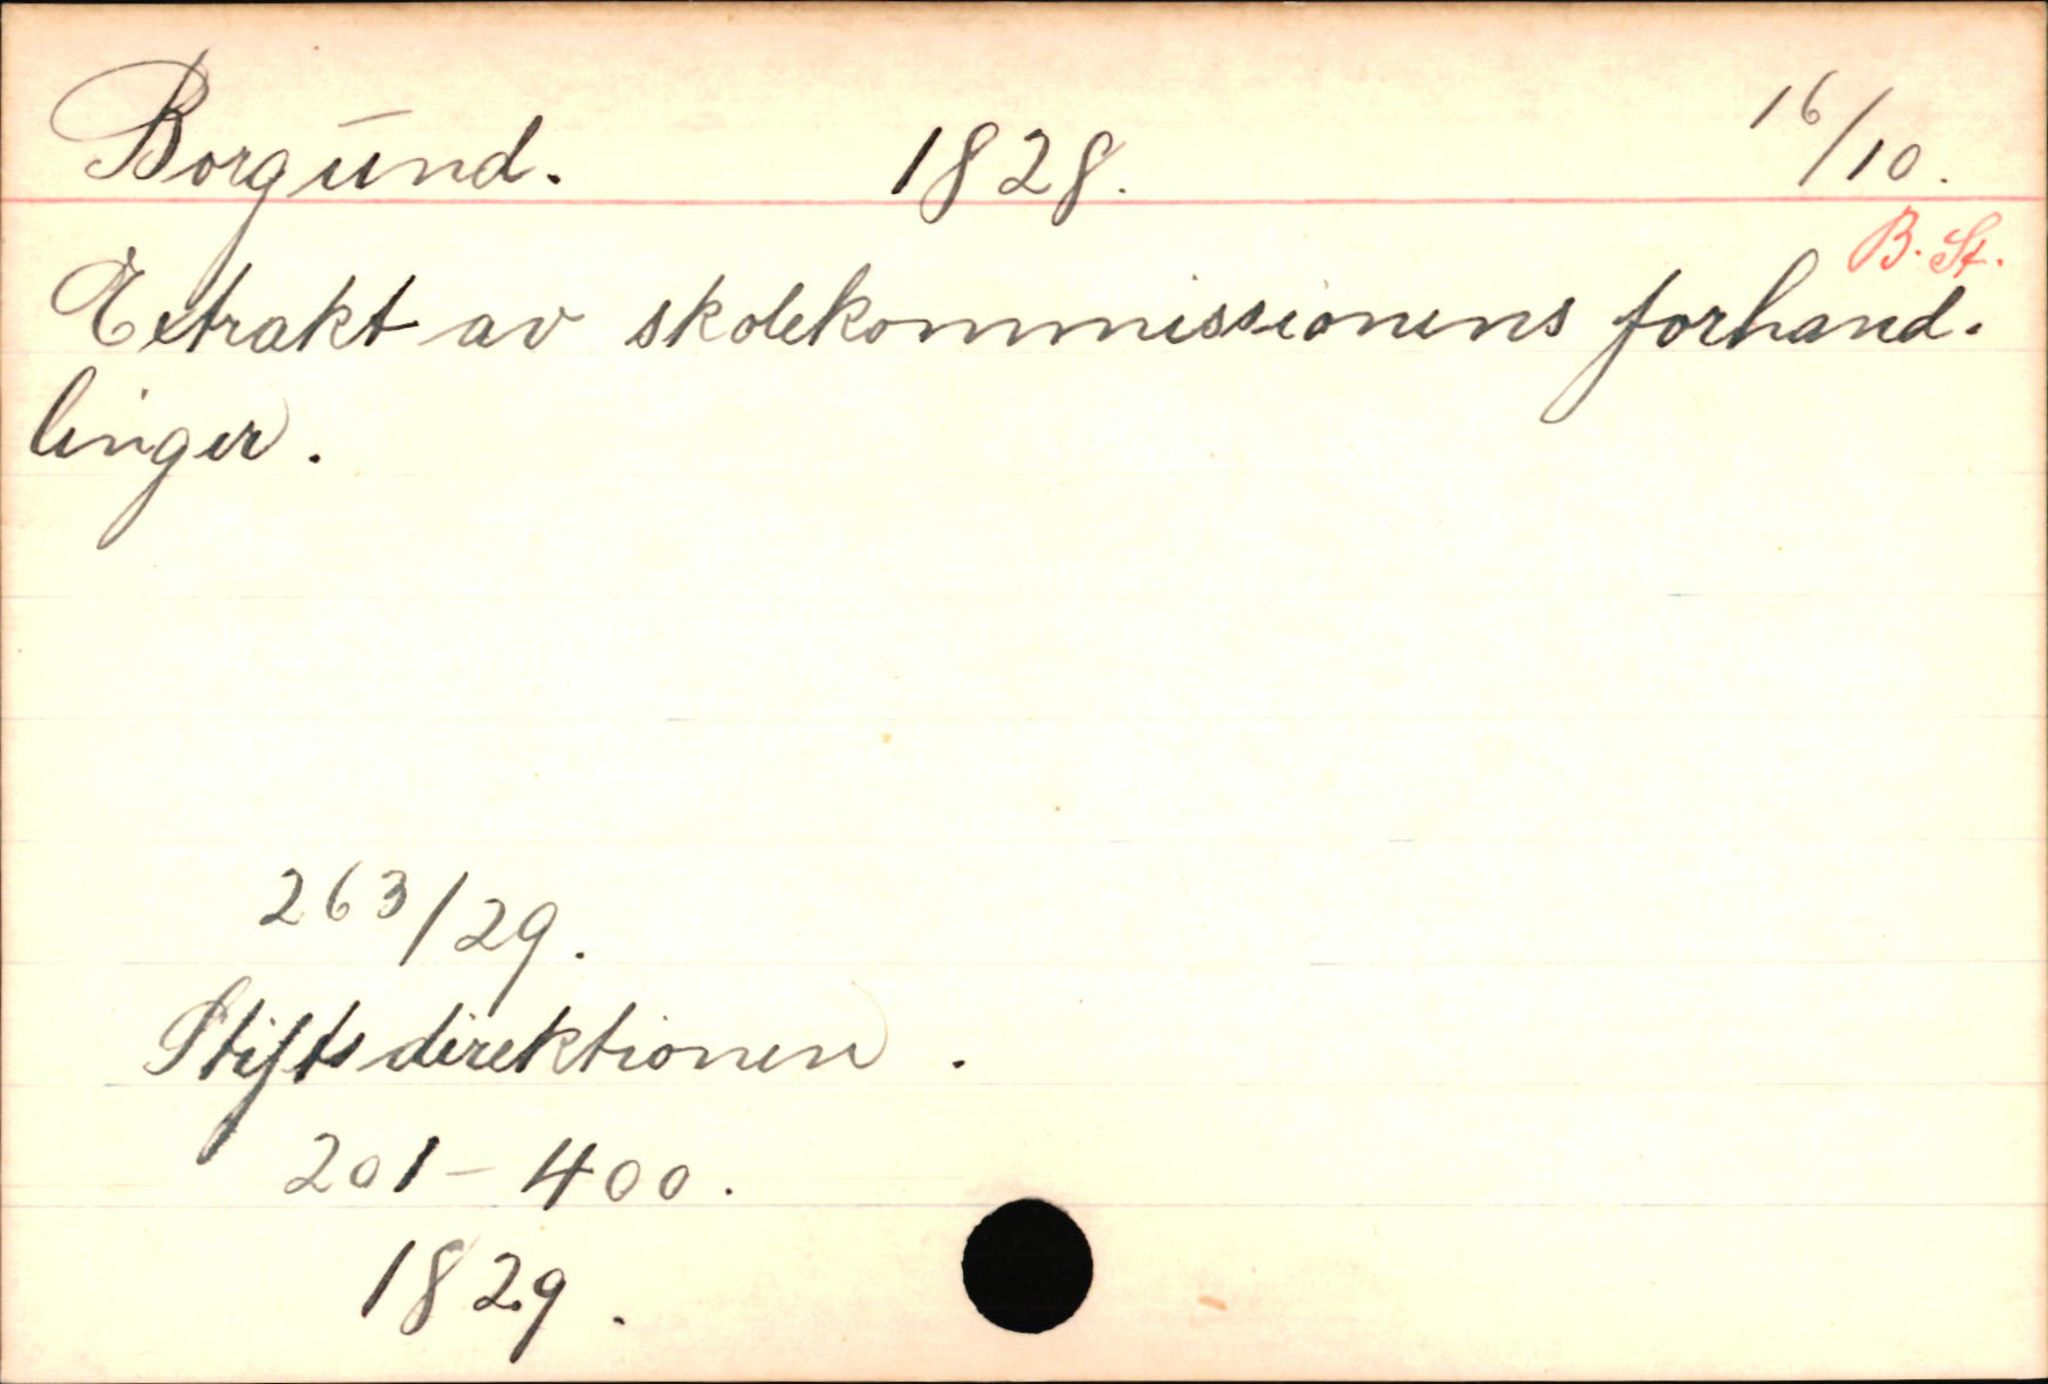 Borgund. 1828. 16/10.
B. St.
Extrakt av skolekommissionens forhand-
linger.
263/29.
Stiftsdirektionen.
201-400.
1829.